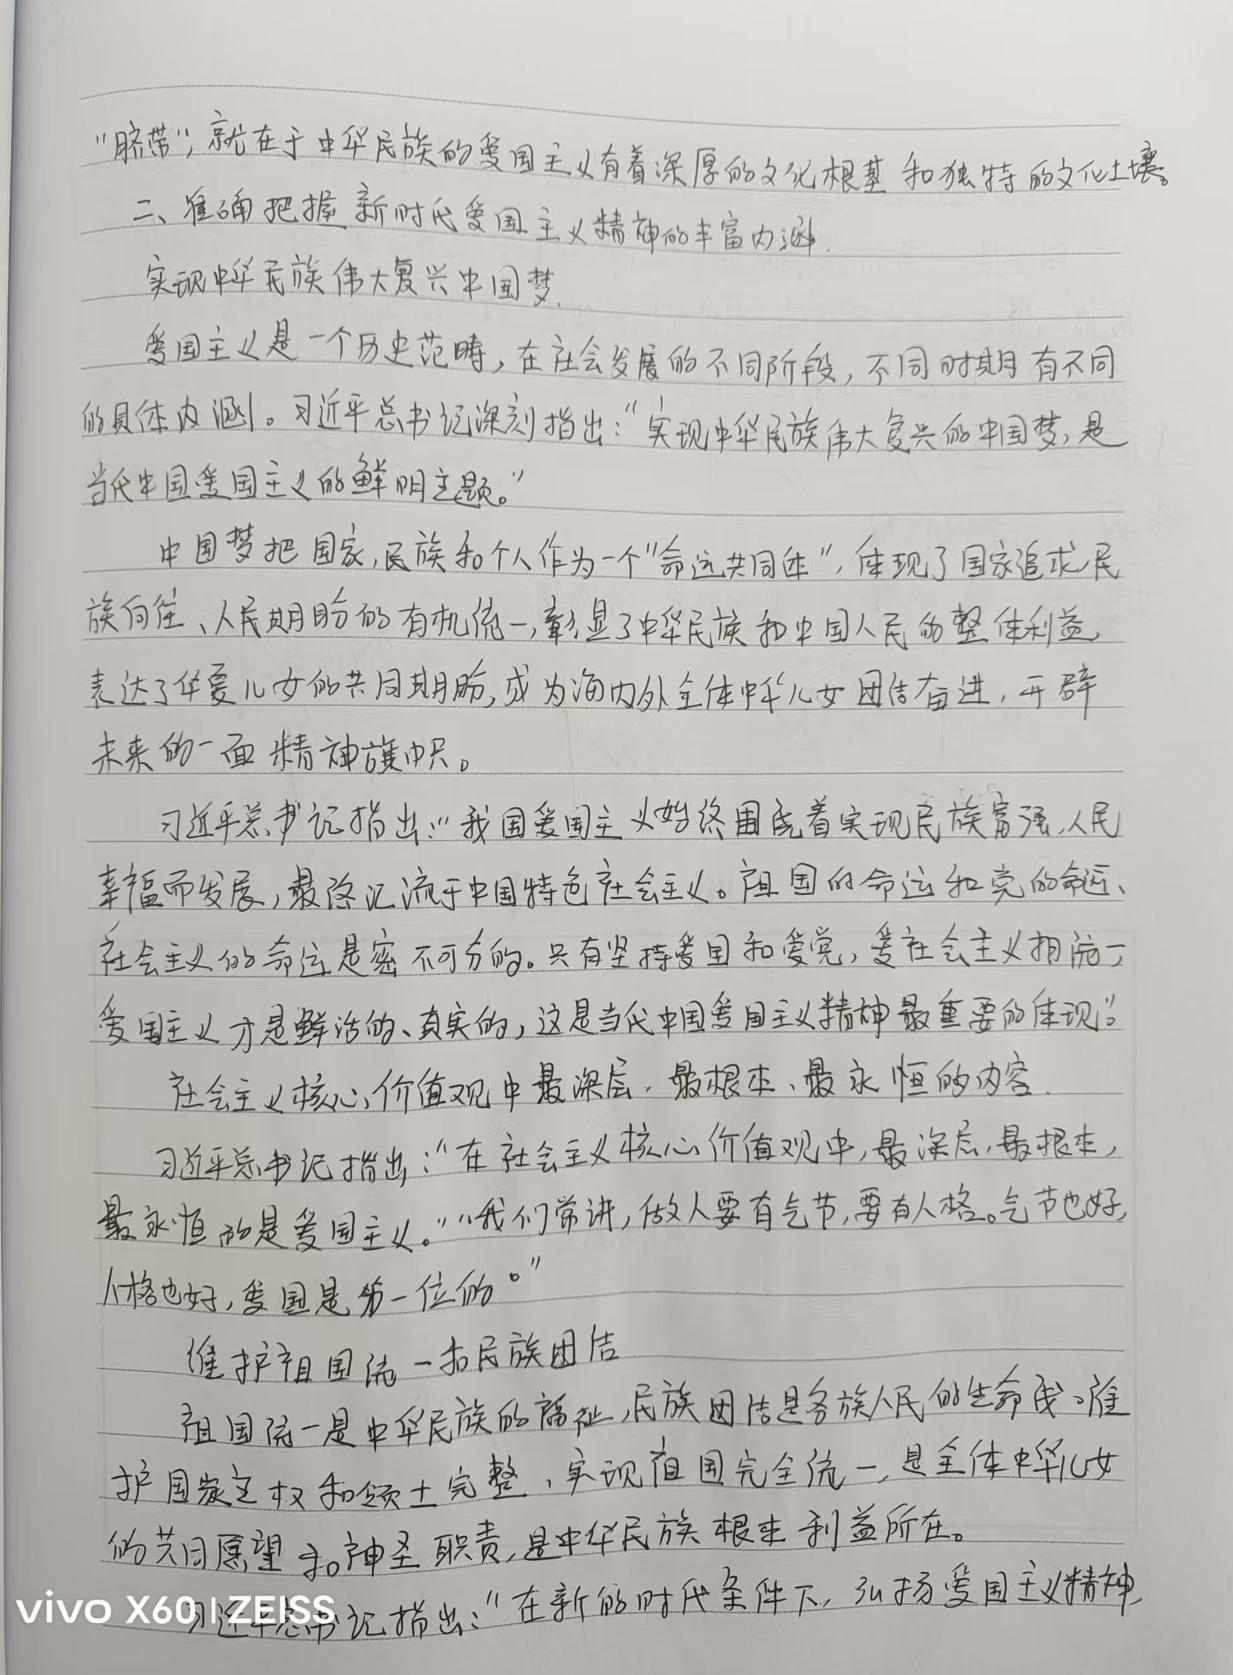 “脐带”，就在于中华民族的爱国主义有着深厚的文化根基和独特的文化土壤。
二、准确把握新时代爱国主义精神的丰富内涵.
实现中华民族伟大复兴中国梦.
爱国主义是一个历史范畴，在社会发展的不同阶段，不同时期有不同
的具体内涵。习近平总书记深刻指出：“实现中华民族伟大复兴的中国梦，是
当代中国爱国主义的鲜明主题。”
中国梦把国家，民族和个人作为一个“命运共同体”，体现了国家追求、民
族向往、人民期盼的有机统一，彰显了中华民族和中国人民的整体利益，
表达了华夏儿女的共同期盼，成为海内外全体中华儿女团结奋进，开辟
未来的一面精神旗帜。
习近平总书记指出：“我国爱国主义始终围绕着实现民族富强、人民
幸福而发展，最终汇流于中国特色社会主义。祖国的命运和党的命运、
社会主义的命运是密不可分的。只有坚持爱国和爱党，爱社会主义相统一，
爱国主义才是鲜活的、真实的，这是当代中国爱国主义精神最重要的体现”。
社会主义核心价值观中最深层、最根本、最永恒的内容.
习近平总书记指出：“在社会主义核心价值观中，最深层，最根本，
最永恒的是爱国主义。”“我们常讲，做人要有气节，要有人格。气节也好，
人格也好，爱国是第一位的。”
维护祖国统一和民族团结
祖国统一是中华民族的福祉，民族团结是各族人民的生命线。维
护国家主权和领土完整，实现祖国完全统一，是全体中华儿女
的共同愿望和神圣职责，是中华民族根本利益所在。
习近平总书记指出：“在新的时代条件下，弘扬爱国主义精神，
vivo X60 | ZEISS